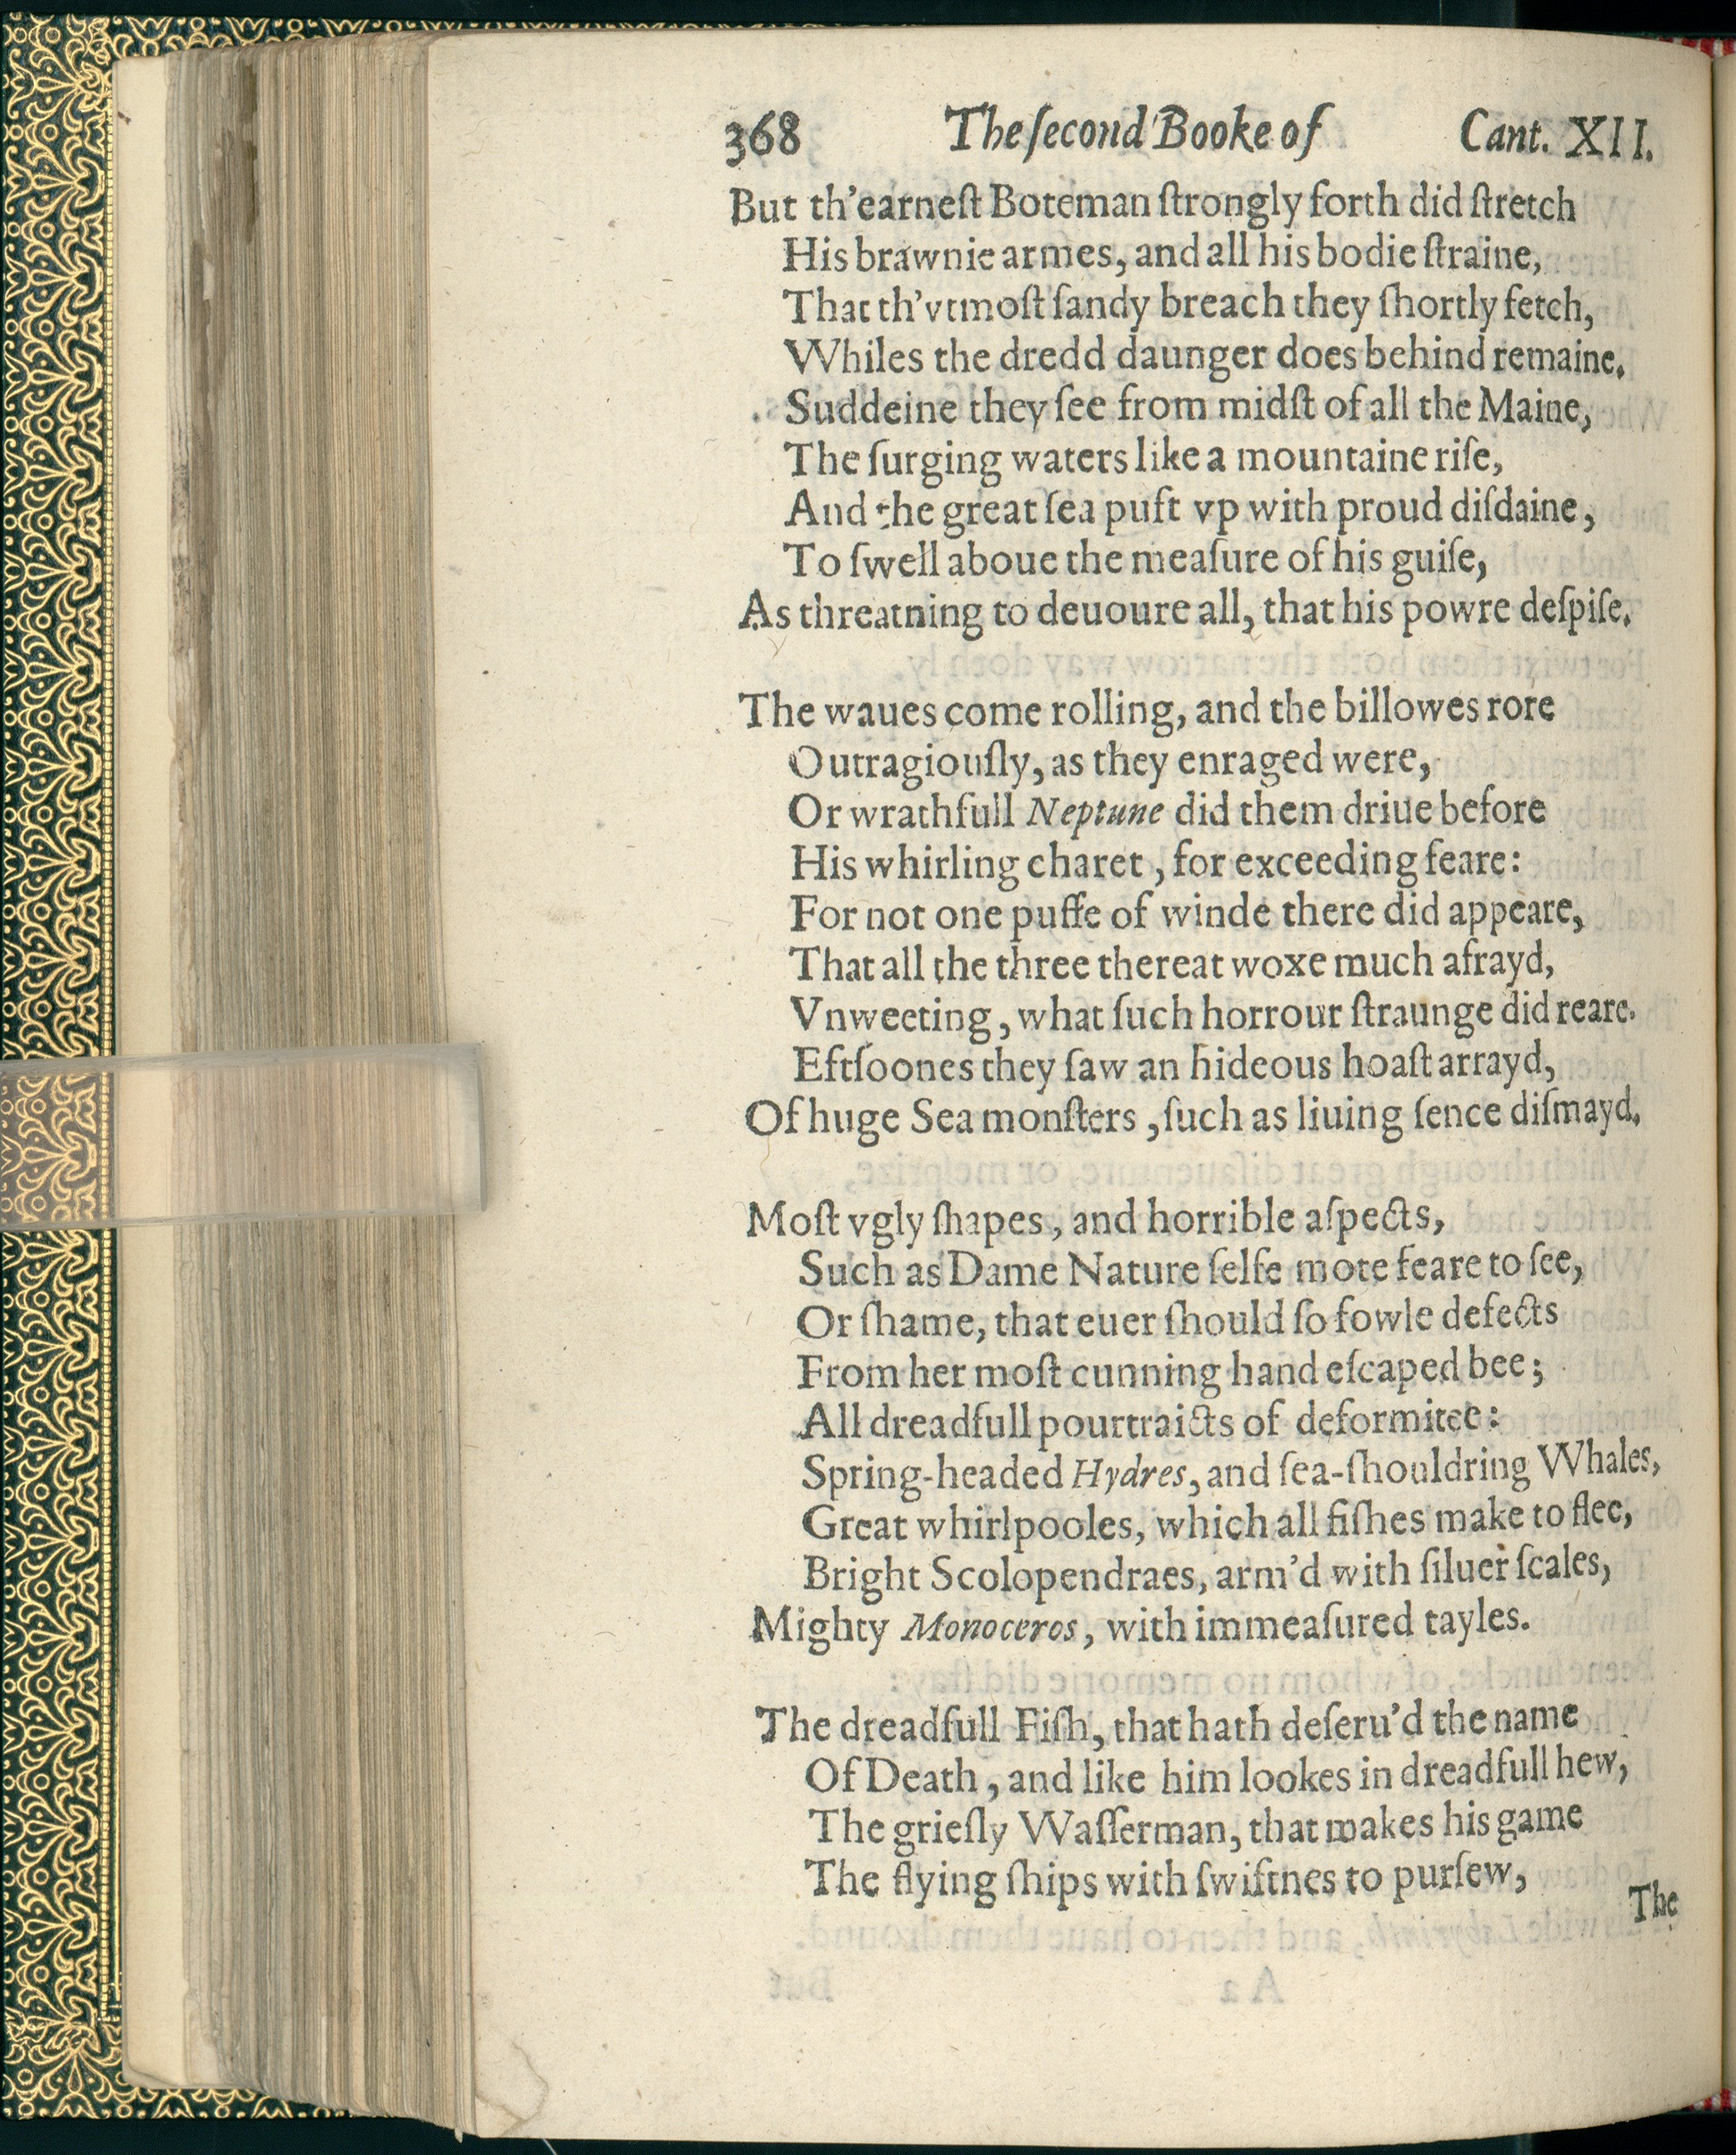 368 The ſecond Booke of Cant. XII.
But th'earneſt Boteman ſtrongly forth did ſtretch
His brawnie armes, and all his bodie ſtraine,
That th'vtmoſt ſandy breach they ſhortly fetch,
Whiles the dredd daunger does behind remaine.
Suddeine they ſee from midſt of all the Maine,
The ſurging waters like a mountaine riſe,
And the great ſea puft vp with proud diſdaine,
To ſwell aboue the meaſure of his guiſe,
As threatning to deuoure all, that his powre deſpiſe.
The waues come rolling, and the billowes rore
Outragiouſly, as they enraged were,
Or wrathfull Neptune did them driue before
His whirling charet, for exceeding feare:
For not one puffe of winde there did appeare,
That all the three thereat woxe much afrayd,
Vnweeting, what ſuch horrour ſtraunge did reare.
Eftſoones they ſaw an hideous hoaſt arrayd,
Of huge Sea monſters, ſuch as liuing ſence diſmayd.
Moſt vgly ſhapes, and horrible aſpects,
Such as Dame Nature ſelfe mote feare to ſee,
Or ſhame, that euer ſhould ſo fowle defects
From her moſt cunning hand eſcaped bee;
All dreadfull pourtraicts of deformitee:
Spring-headed Hydres, and ſea-ſhouldring Whales,
Great whirlpooles, which all fiſhes make to flee,
Bright Scolopendraes, arm'd with ſiluer ſcales,
Mighty Monoceros, with immeaſured tayles.
The dreadfull Fiſh, that hath deſeru'd the name
Of Death, and like him lookes in dreadfull hew,
The grieſly Waſſerman, that makes his game
The flying ſhips with ſwiftnes to purſew,
The